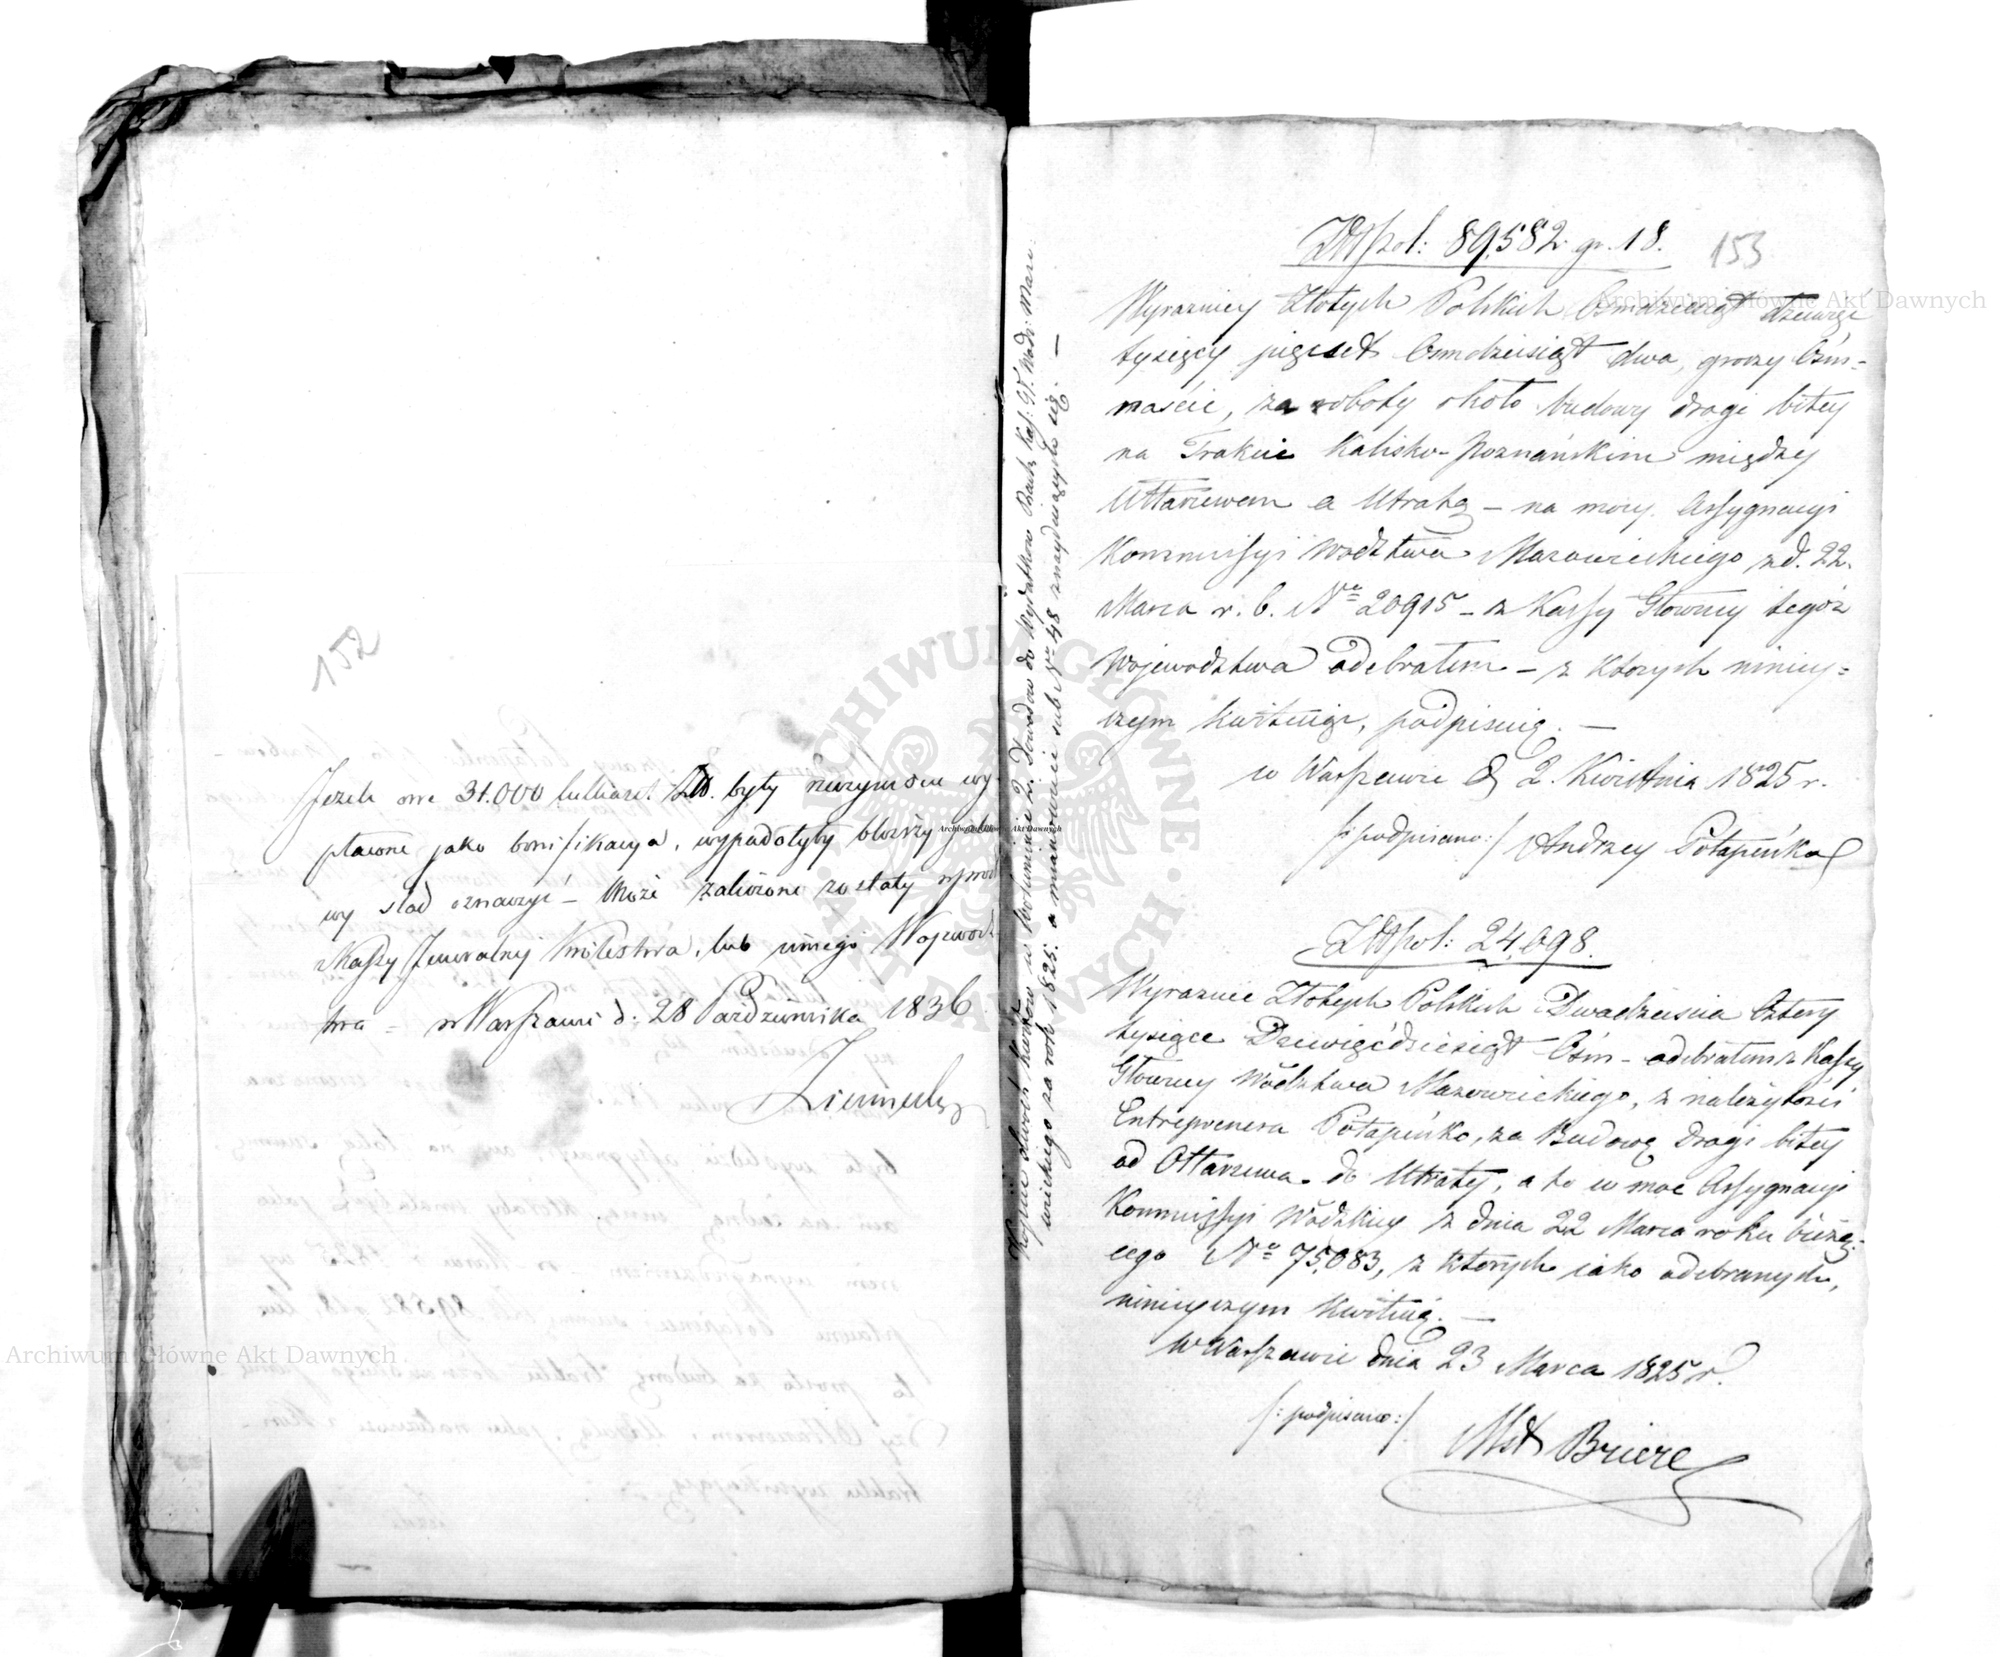 152
Jezeli owe 31.000 kilkaset Złł. były rzeczywiście wy-
płacone jako bonifikacya, wypadałyby bliższy
wy ślad oznaczyć – Może zaliczone zostały
Kassy Jeneralney Królestwa, lub innego Wojewodz
twa – w Warszawie d: 28 Października 1836
Kopije dwóch Kwitów w Woluminie 2. Dowodów do Wydatków Kas: Gł. Wodz: Mazo:
wieckiego za rok 1825. a mianowicie sub Nr 48 znayduiących się. —
Złłpol: 89,582 gr. 18.
153
Wyraźniey Złotych Polskich Ośmdziesiąt dziewięć
tysięcy pięćset Ośmdziesiąt dwa, groszy Ośm-
naście, za roboty około budowy drogi bitey
na Trakcie Kalisko-Poznańskim między
Ołtarzewem a Utratą – na mocy Assygnacyi
Kommissyi Wodztwa Mazowieckiego z d. 22.
Marca r. b. Nro 20915 – z Kassy Głowney tegoż
Województwa odebrałem – z których niniey-
szym kwituiąc, podpisuię. —
w Warszawie d. 2. Kwietnia 1825 r.
/: podpisano :/ Andrzey Potapeńko
Złłpol: 24,098.
Wyraźnie Złotych Polskich Dwadzieścia Cztery
tysiące Dziewięćdziesiąt Ośm – odebrałem z Kassy
Głowney Wodztwa Mazowieckiego, z należytości
Entreprenera Potapeńko, za Budowę Drogi bitey
od Ołtarzewa do Utraty, a to w moc Assygnacyi
Kommissyi Wodzkiey z dnia 22 Marca roku bieżą-
cego No 75,083, z ktorych iako odebranych,
ninieyszym kwituię. —
w Warszawie dnia 23 Marca 1825 r.
/: podpisano :/
Briere
Archiwum Główne Akt Dawnych
Archiwum Główne Akt Dawnych
Archiwum Główne Akt Dawnych